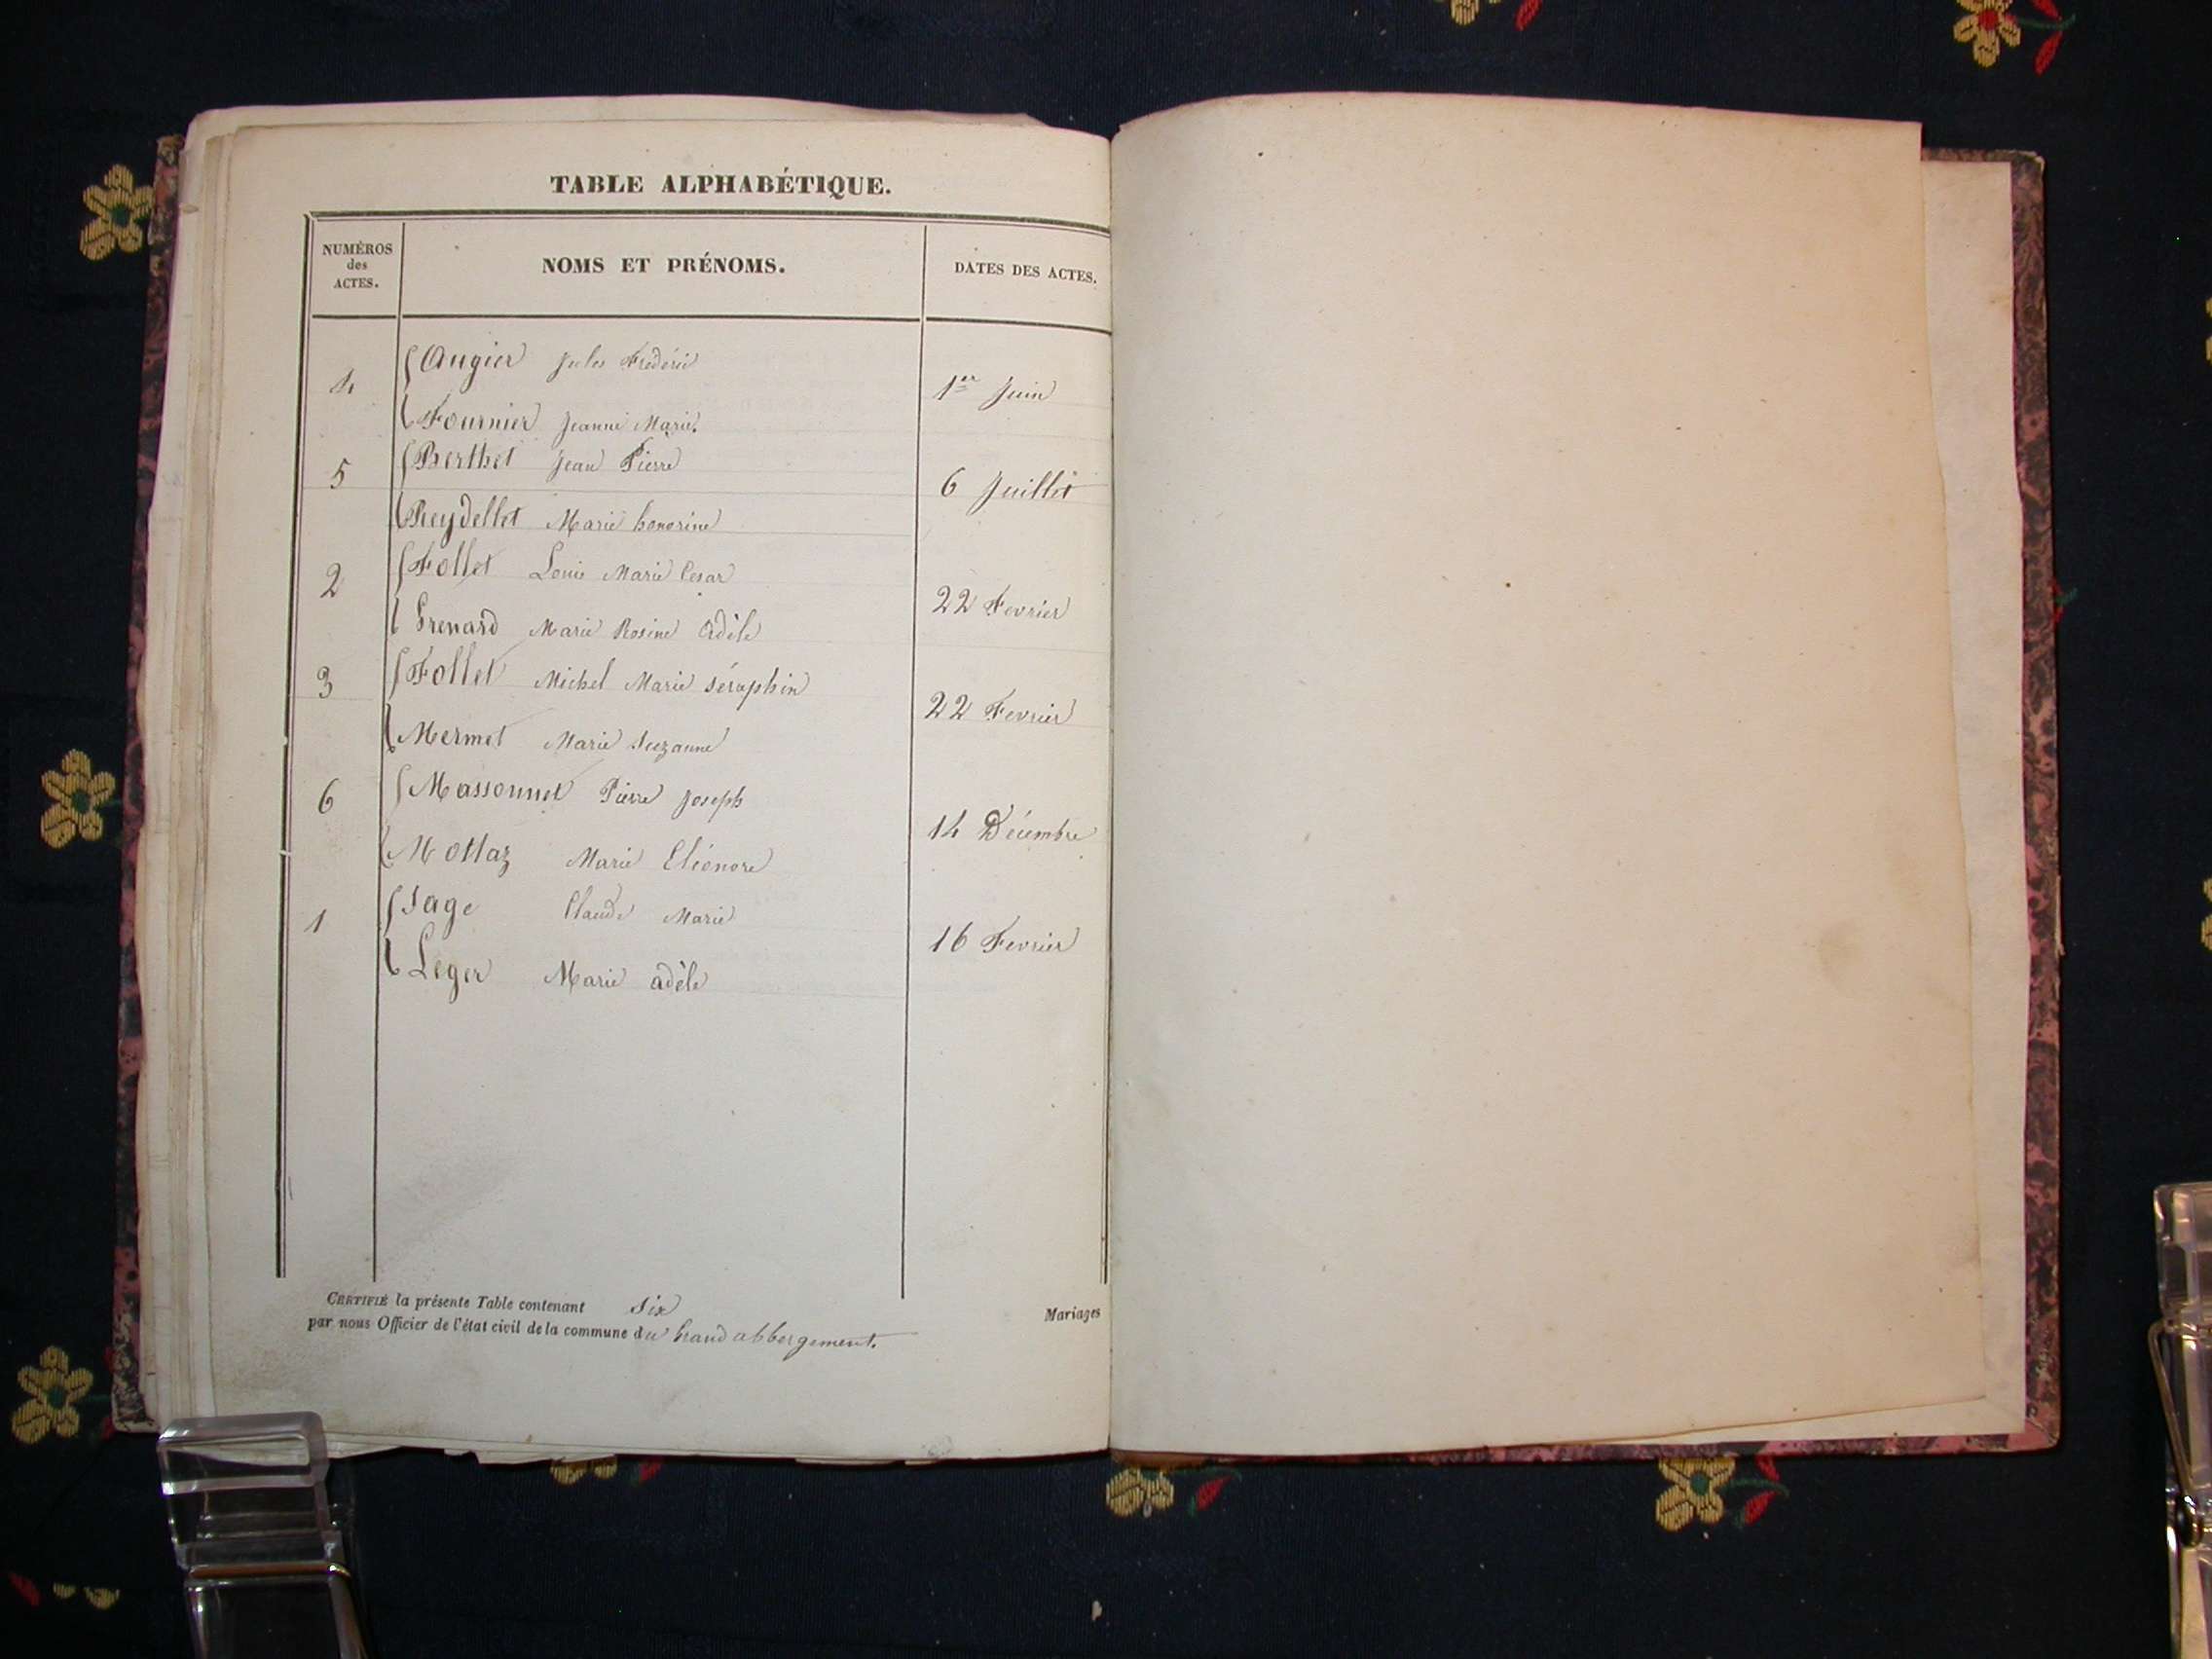 TABLE ALPHABÉTIQUE.
NUMÉROS des ACTES.
NOMS ET PRÉNOMS.
DATES DES ACTES.
Augier Jules Frédéric
4 1er Juin
Fournier Jeanne Marie.
Berthet Jean Pierre
5 6 Juillet
Reydellet Marie honorine
Follet Louis Marie Cesar
2 22 Fevrier
Grenard Marie Rosine Adèle
Follet Michel Marie séraphin
3 22 Fevrier
Mermet Marie Suzanne
Massonnet Pierre Joseph
6 14 Décembre
Mottaz Marie Eléonore
Sage Claude Marie
1 16 Fevrier
Leger Marie adèle
CERTIFIÉ la présente Table contenant six Mariages
par nous Officier de l'état civil de la commune du Grand abbergement.